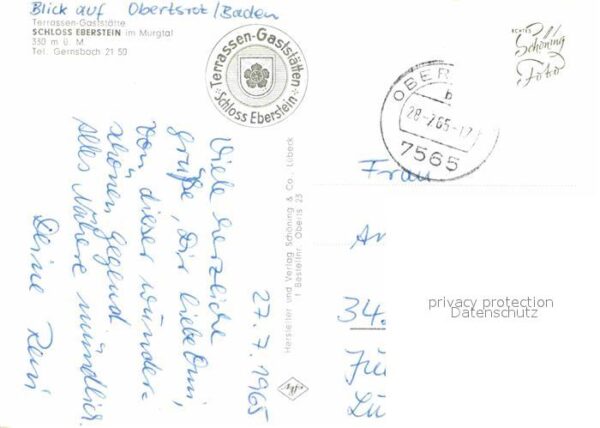 Blick auf Obertsrot/Baden
Terrassen-Gaststätte
SCHLOSS EBERSTEIN im Murgtal
330 m ü. M
Tel. Gernsbach 21 50
Terrassen-Gaststätten
Schloss Eberstein
ECHTES
Schöning
Foto
OBER
b
28-7.65-17
7565
27.7.1965
Viele herzliche
grüße, Dir liebe Omi,
von dieser wunder-
schönen Gegend
Alles Nähere mündlich.
Deine Reni
Hersteller und Verlag Schöning & Co., Lübeck
1 Bestellnr. Oberts 25
Frau
34.
Lü
privacy protection
Datenschutz